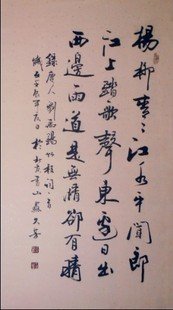 楊柳青々江水平聞郎
江上踏歌聲東邊日出
西邊雨道是無情卻有晴
錄唐人劉禹錫竹枝詞一首
辰年 日於 山